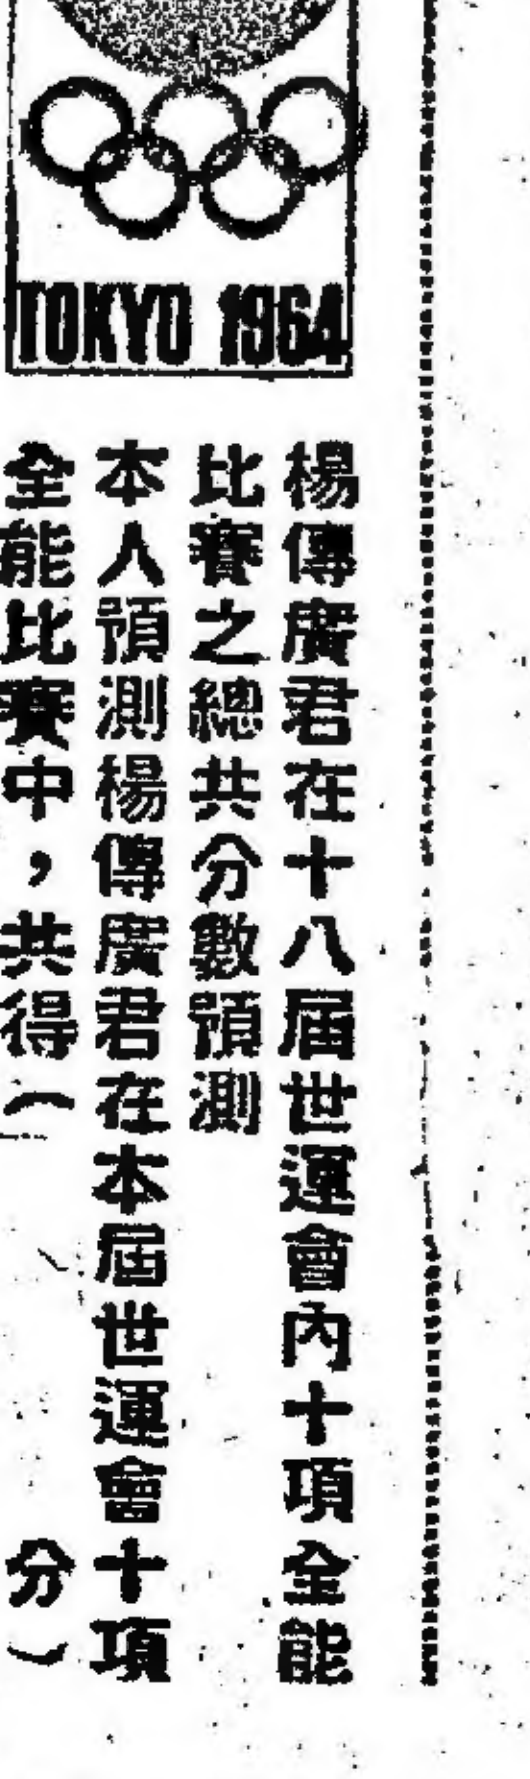 TOKYO 1964
楊傳廣君在十八屆世運會內十項全能
比賽之總共分數預測
本人預測楊傳廣君在本屆世運會十項
全能比賽中，共得（　分）